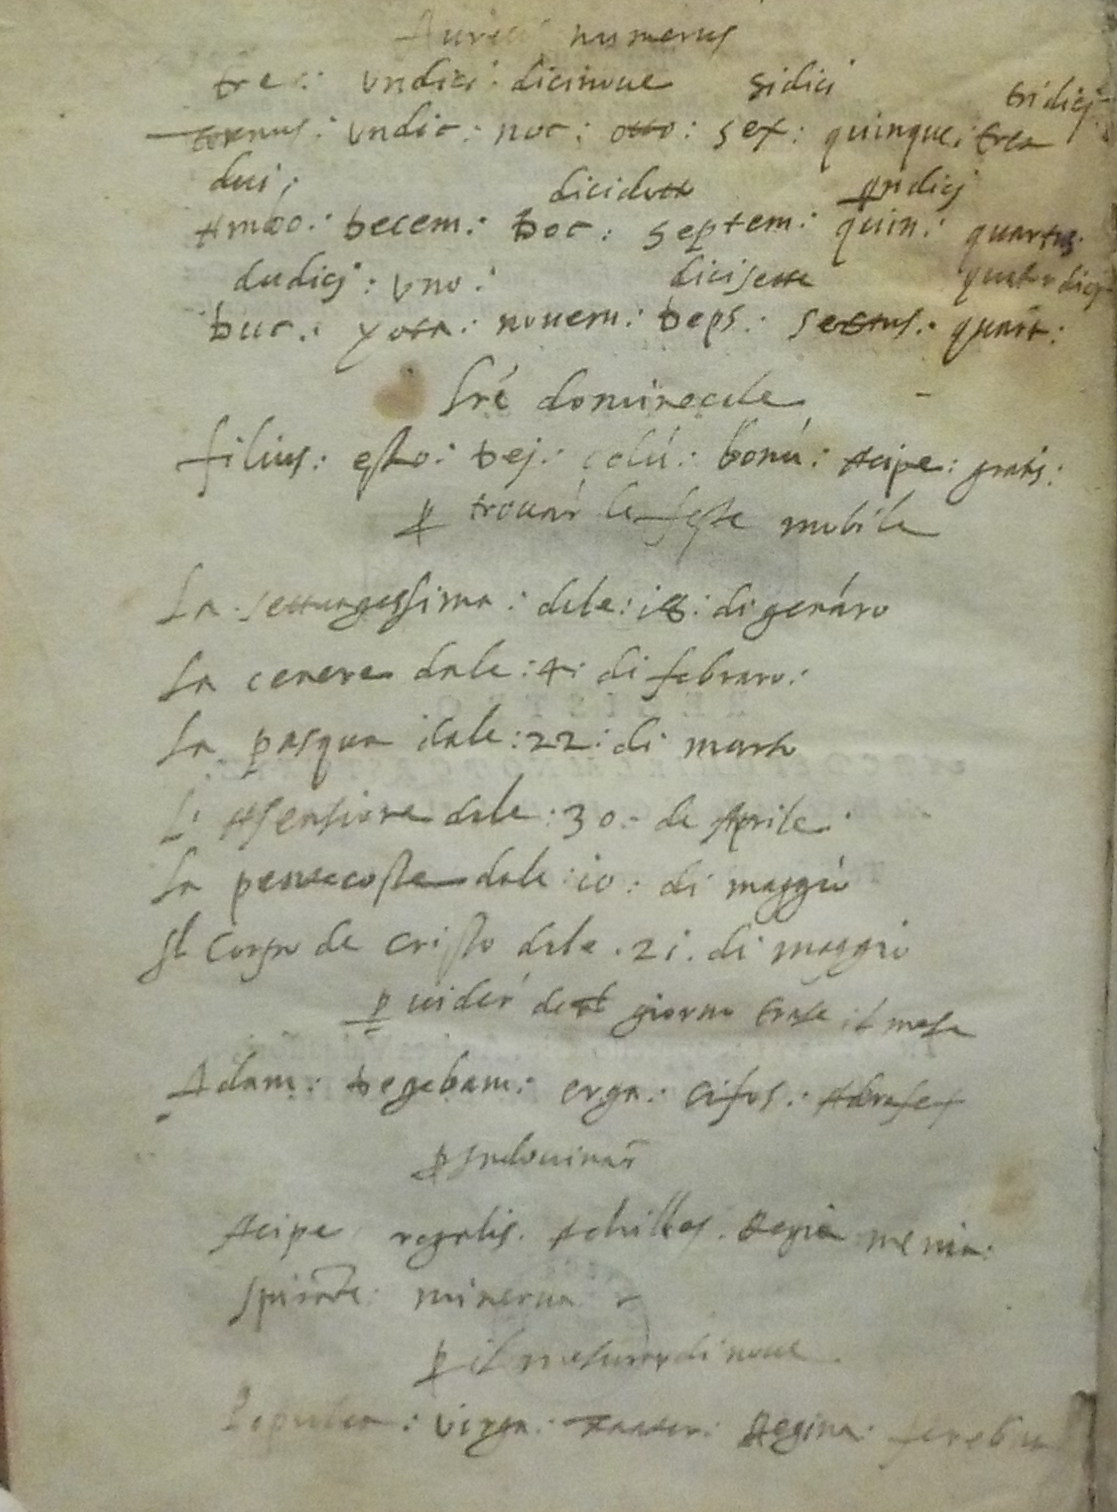 Aurei numerus
tre: undici: dicinove sidici tridicj
ternus: undic: noc: otto: sex: quinque: tres
dui: dicidotto qndicj
Ambo: Decem: Doc: septem: quin: quartus:
dudicj: uno: dicisette quatordicj
Duc: nouem: Deps: sextus: quart:
Lr̃e dominecale
filius: esto: Dej: celú: bonú: Acipe: gratis:
p trouar le feste mobile
La settuagessima: dale: i8: di genáro
La cenere dale: 4: di febraro:
La pasqua dale: 22: di marto
L' Asensione dale: 30: de Aprile
La pentecoste dale: io: di maggio
Il Corpo de Cristo dale. 2i. di maggio
p uider giorno il mese
Adam: Degebam: erga: cifos: Adrifex
p indouinar
Acipe regalis. Achilles. Regia menia:
spirate: minerua
p il di noue
virga: Regina: ferebat